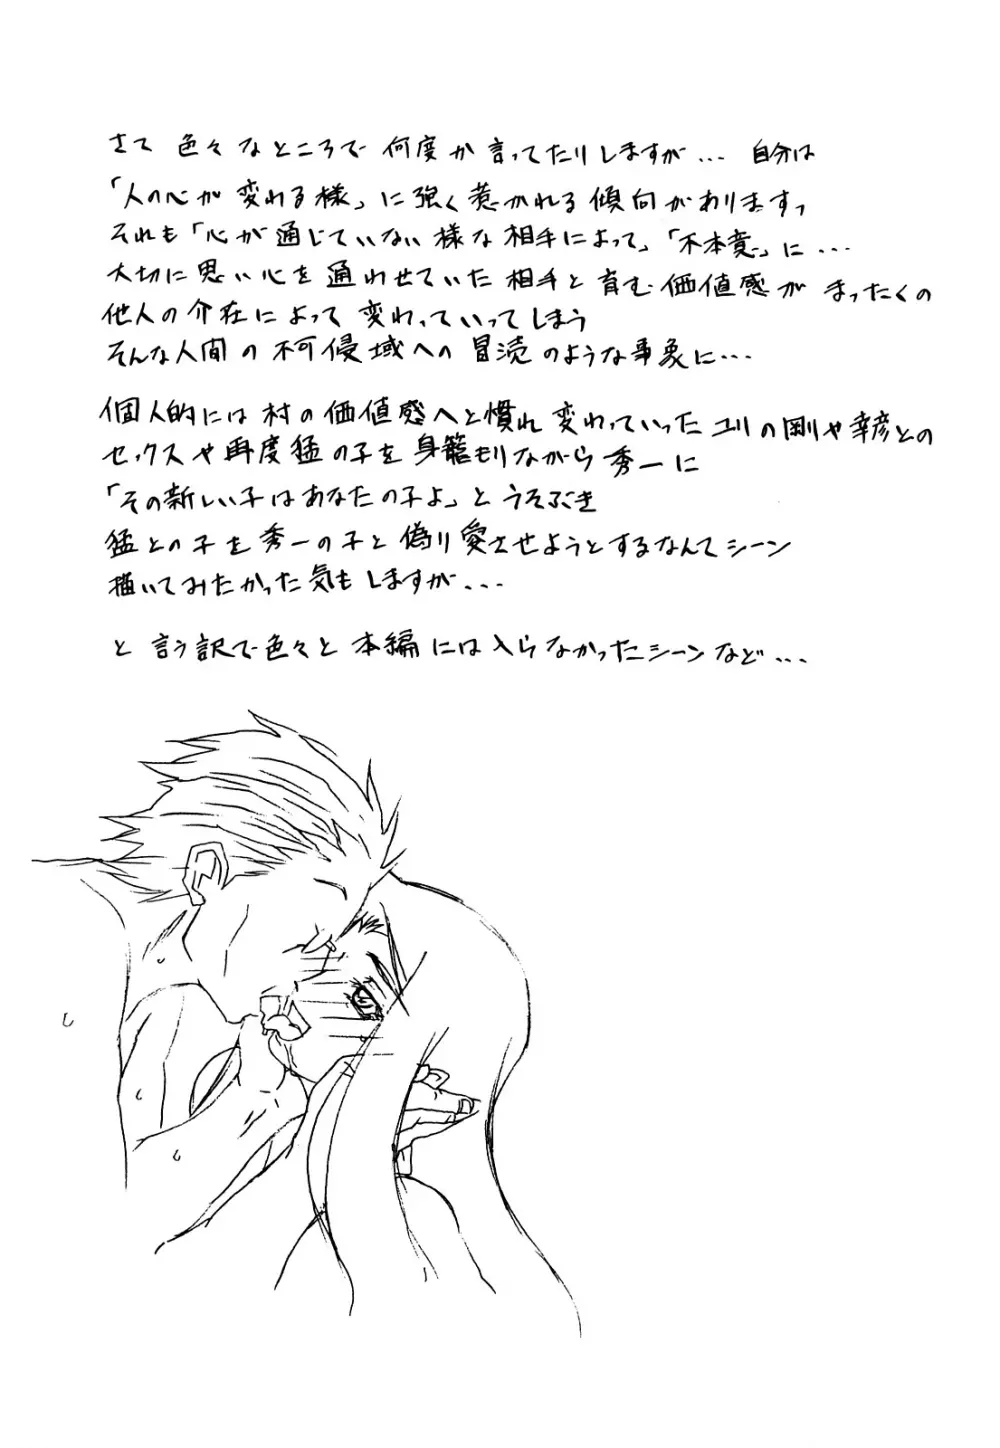 さて 色々なところで 何度か 言ってたりしますが... 自分は
「人の心が 変わる様」に強く惹かれる傾向がありますっ
それも「心が通じていない様な相手によって」「不本意」に...
大切に思い心を通わせていた相手と育む価値感が まったくの
他人の介在によって 変わっていってしまう
そんな人間の不可侵域への冒涜のような事象に...
個人的には村の価値感へと慣れ変わっていったユリの剛や幸彦との
セックスや再度猛の子を身籠もりながら秀一に
「その新しい子はあなたの子よ」と うそぶき
猛との子を秀一の子と偽り愛させようとするなんてシーン
描いてみたかった気もしますが...
と 言う訳で色々と 本編には入らなかったシーンなど...